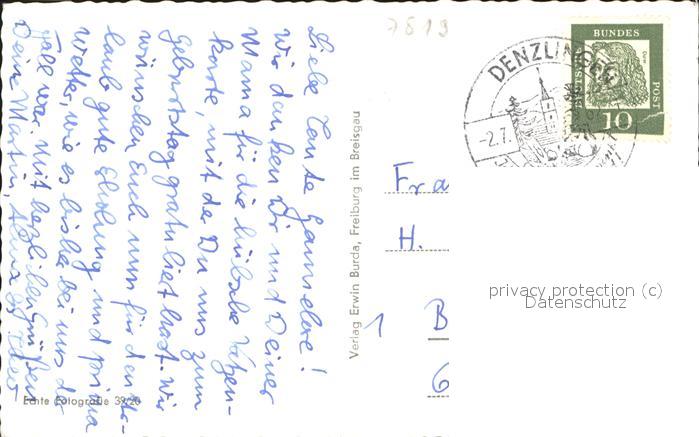 Liebe Tante Hannelore!
Wir danken Dir und Deiner
Mama für die hübsche Katzen-
karte, mit der Du uns zum
Geburtstag gratuliert hast. Wir
wünschen Euch nun für den Ur-
laub gute Erholung und prima
Wetter, wie es bisher bei uns der
Fall war. Mit herzlichen Grüßen
Deine Martin,
Echte Fotografie 39/20
Verlag Erwin Burda, Freiburg im Breisgau
7819
DENZLINGEN
-2.7.
DEUTSCHE
BUNDES
POST
10
Fra
H.
1 B
6
privacy protection (c)
Datenschutz